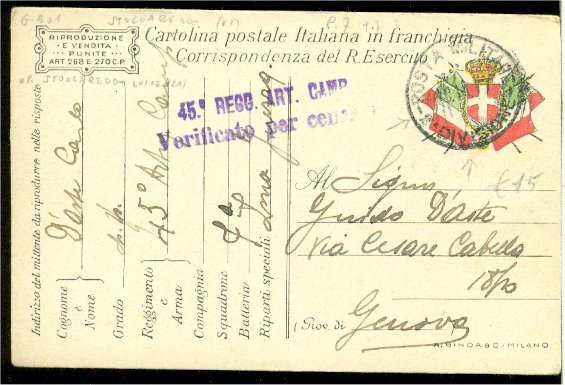 G-B01 STOCCAREDDO P.7
RIPRODUZIONE
E VENDITA
PUNITE
ART 268 E 270 C.P.
Cartolina postale Italiana in franchigia
Corrispondenza del R. Esercito
U.P. STOCCAREDDO (VICENZA)
POSTA MILITARE
45.° REGG. ART. CAMP
Verificato per cens
£15
Indirizzo del mittente da riprodurre nelle risposte
Cognome e Nome D'Aste Carlo
Grado
Reggimento e Arma 45° Art. Camp
Compagnia
Squadrone
Batteria
Riparti speciali Zona guerra
Al Signor
Guido D'Aste
Via Cesare Cabella
(Prov. di Genova
A. GINOA & C - MILANO